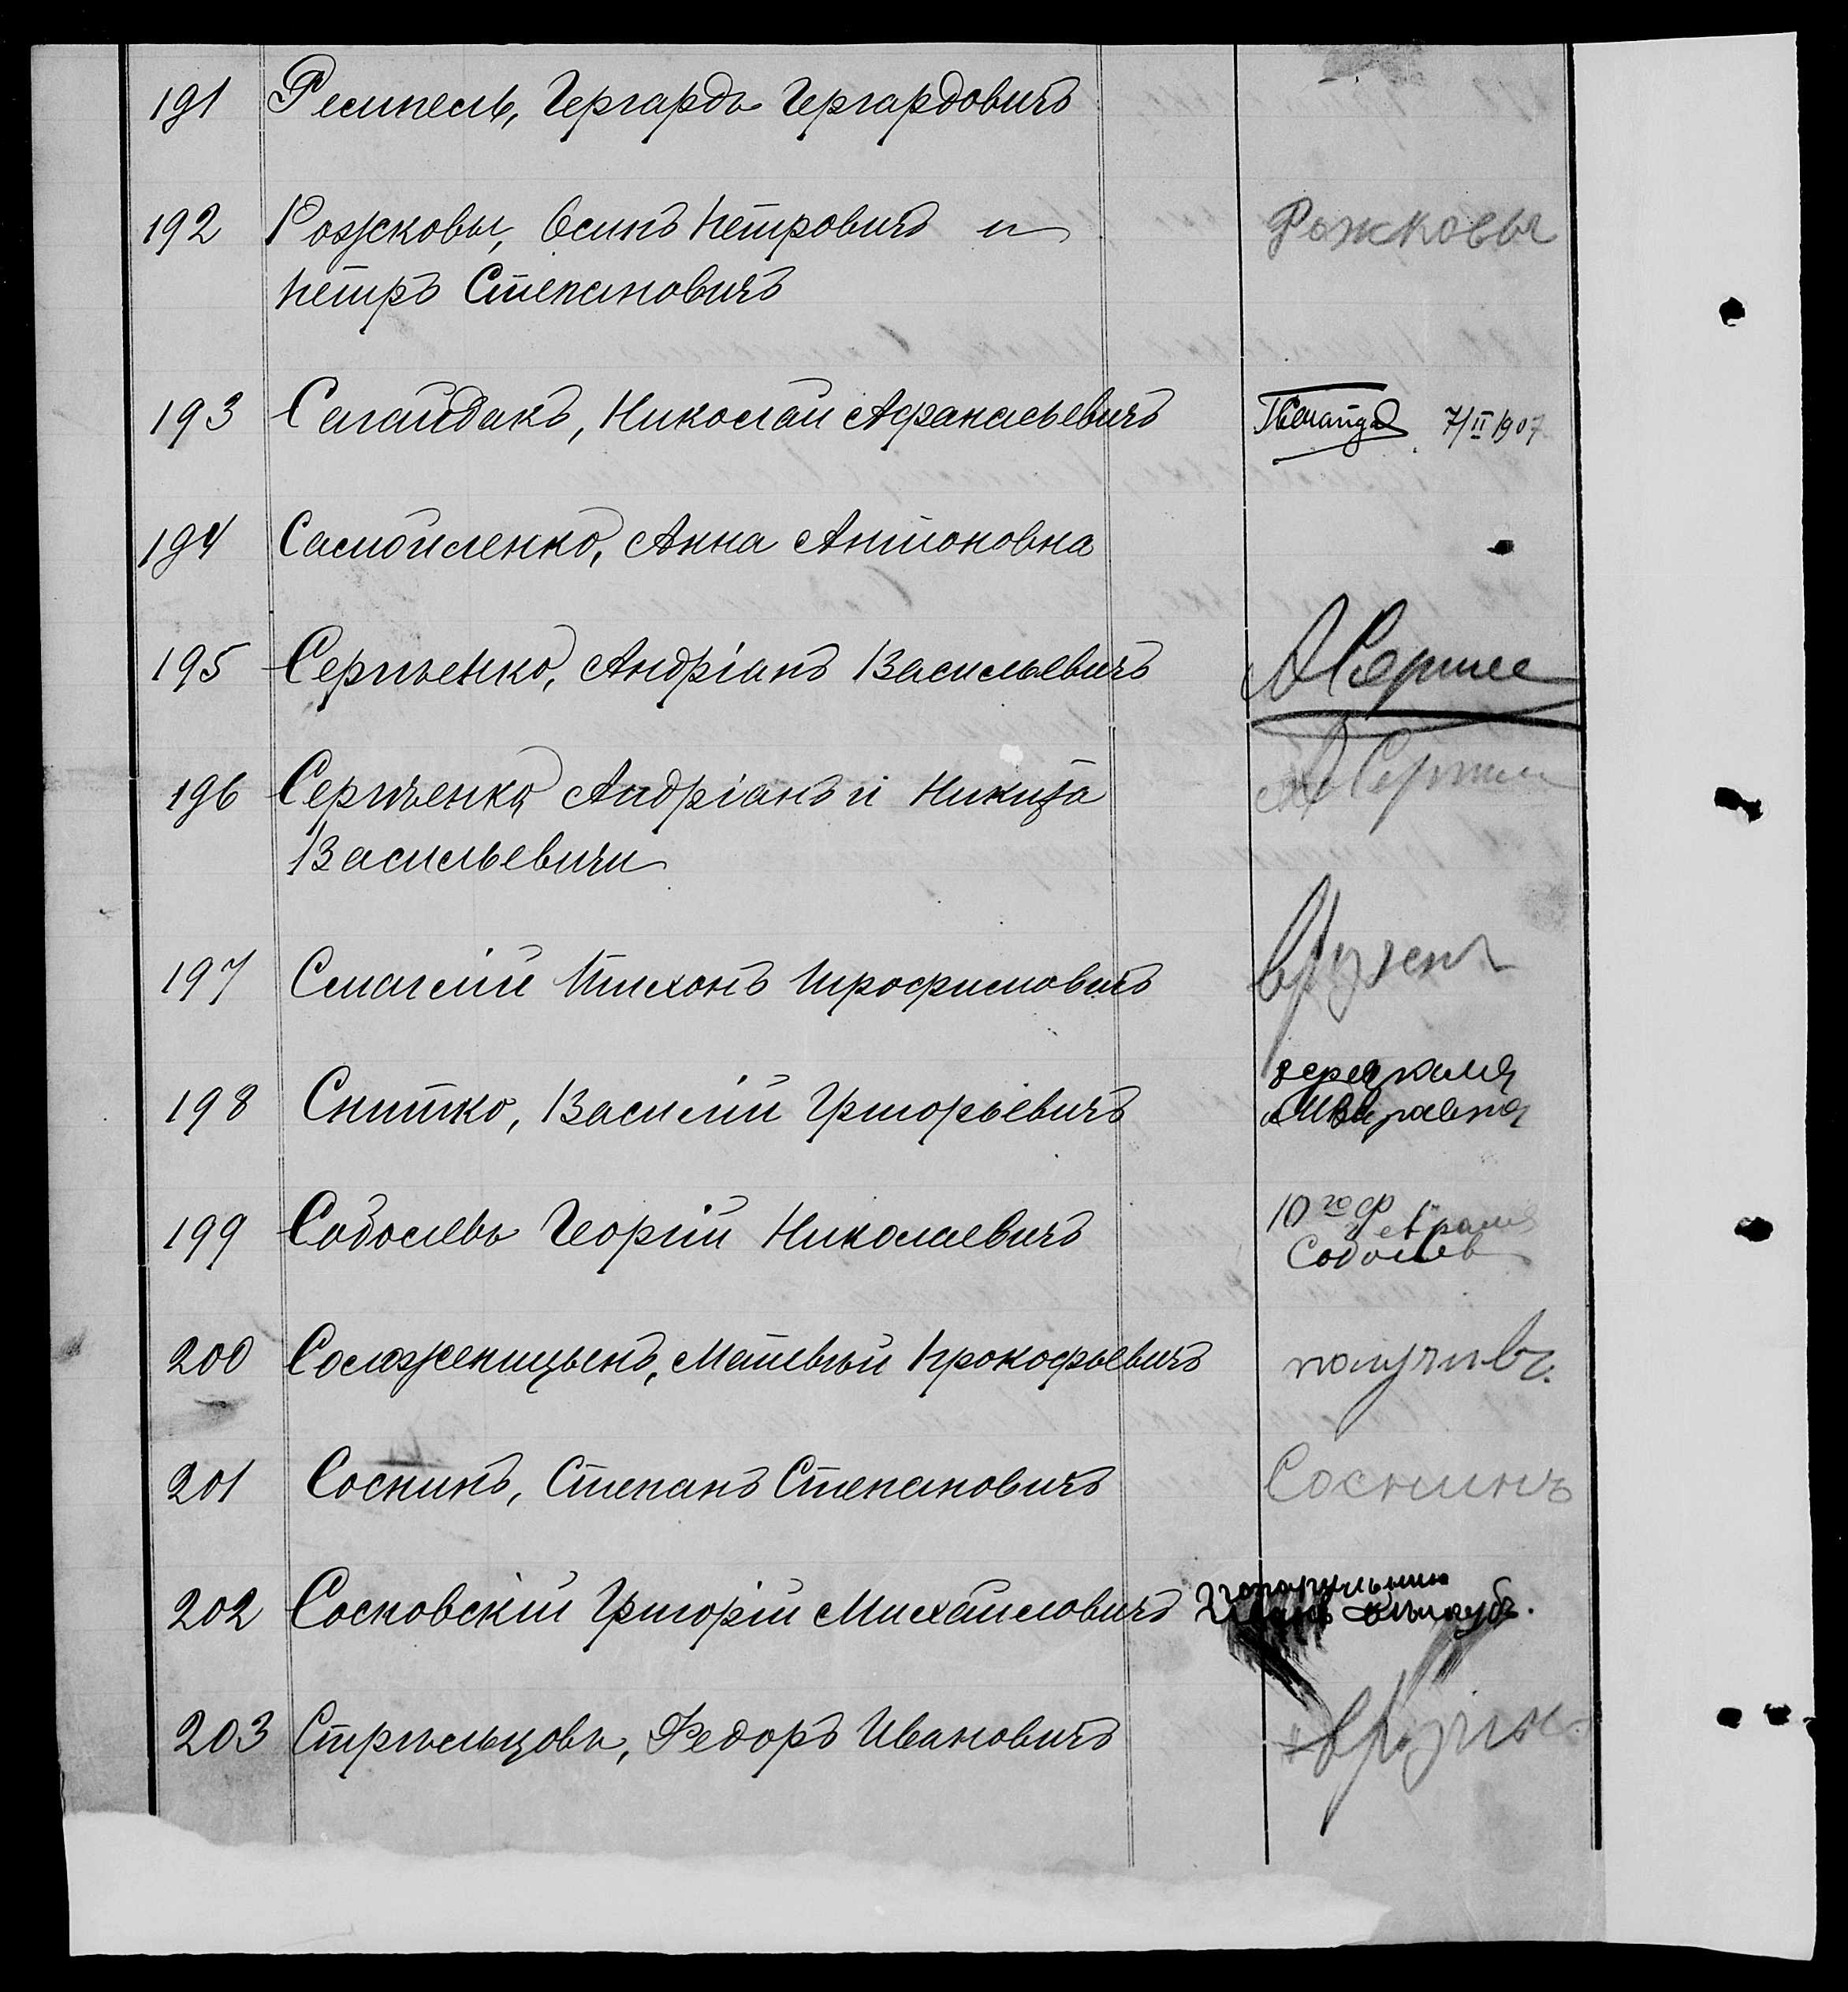 191 Ремпель, Гергардъ Гергардовичъ
192 Рожковы, Осипъ Петровичъ и Рожковы
Петръ Степановичъ
193 Сагайдакъ, Николай Афанасьевичъ 7/II 1907
194 Самойленко, Анна Антоновна
195 Сергѣенко, Андріанъ Васильевичъ АСергее
196 Сергѣенко, Андріанъ и Никита
Васильевичи
197 Смаглій Тихонъ Трофимовичъ вручен
198 Снитко, Василій Григорьевичъ
199 Соболевъ Георгій Николаевичъ 10го Февраля
Соболев
200 Солженицынъ, Матвѣй Прокофьевичъ получивъ.
201 Соснинъ, Степанъ Степановичъ Соснинъ
202 Сосновскій Григорій Михайловичъ
203 Стрѣльцовъ, Федоръ Ивановичъ